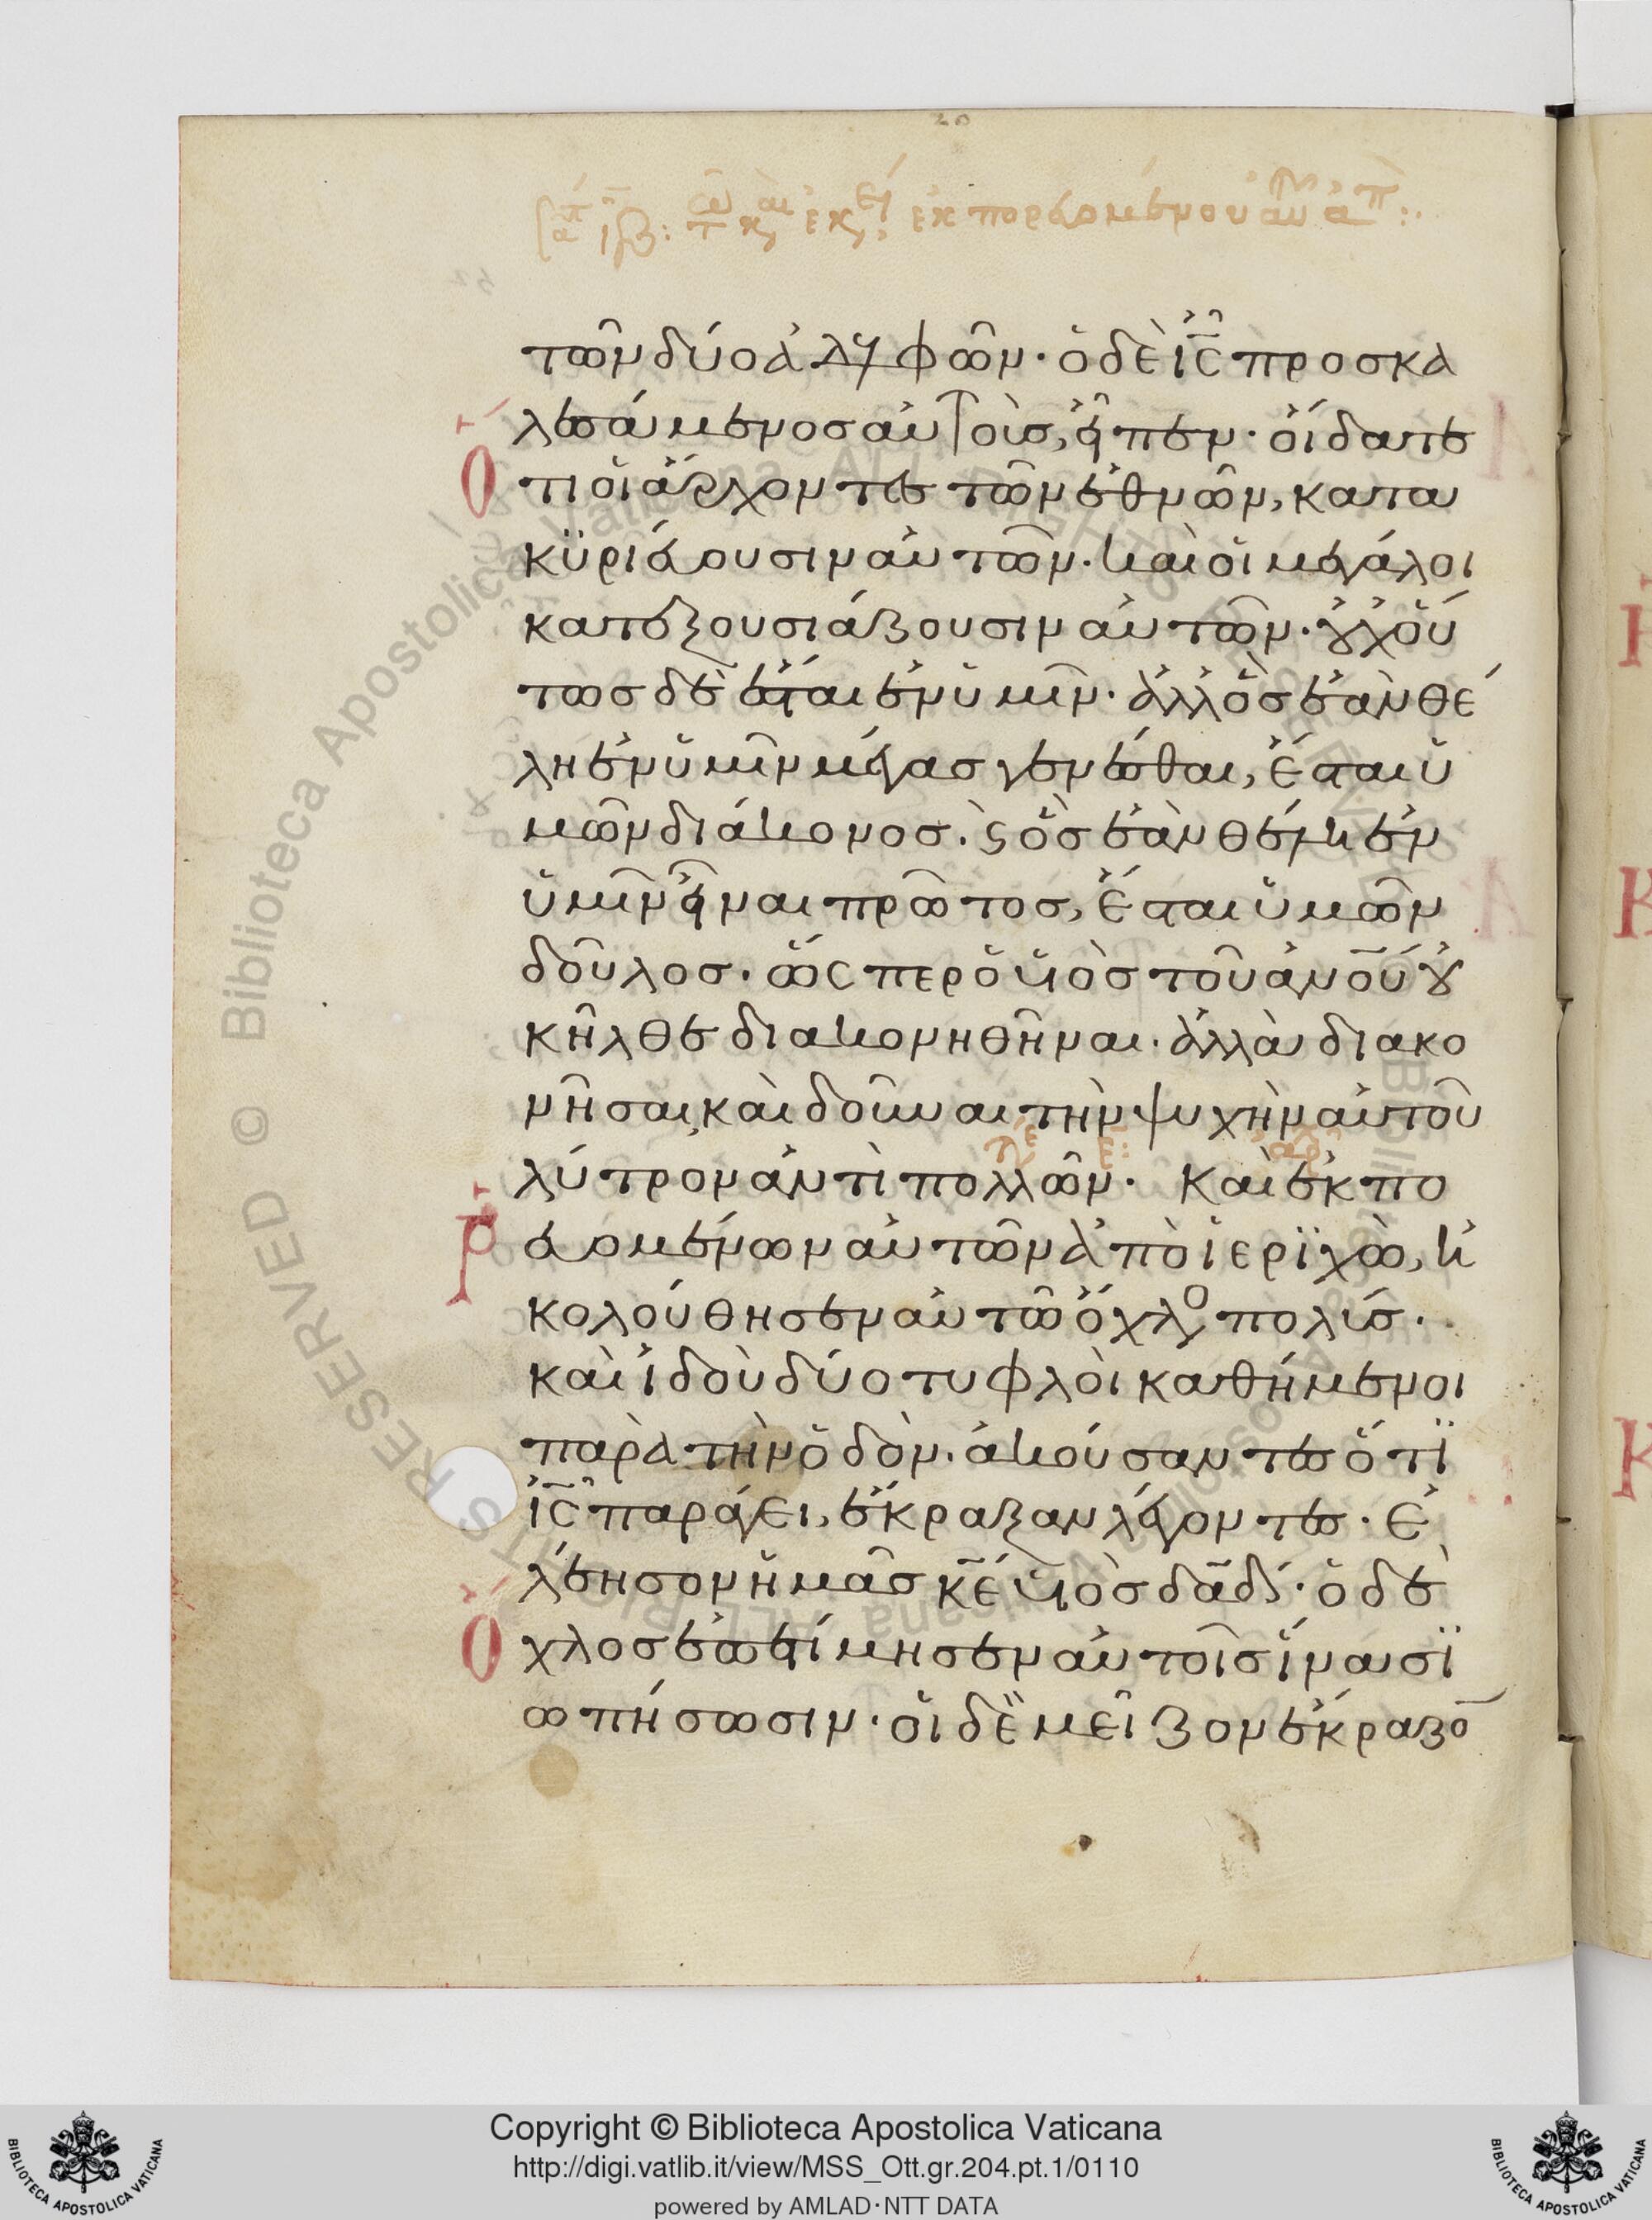 τῶν δύο ἀδελφῶν· ὁ δὲ ἰ̅ς̅ προσκα
λεσάμενος αὐτοὺς, εἶπεν· οἴδατε
ὅτι οἱ ἄρχοντες τῶν ἐθνῶν, κατα
κϋριεύουσιν αὐτῶν· καὶ οἱ μεγάλοι
κατεξουσιάζουσιν αὐτῶν· οὐχ οὕ
τως δὲ ἔσται ἐν ὑμῖν· ἀλλ ὃς ἐὰν θέ
λη ἐν ὑμῖν μέγας γενέσθαι, ἔσται ὑ
μῶν διάκονος· ϗ ὃς ἐὰν θέλη ἐν
ὑμῖν εἶναι πρῶτος, ἔσται ὑμῶν
δοῦλος· ὥσπερ ὁ υἱὸς τοῦ ἀν̅ο̅υ̅ οὐ
κ ἦλθε διακονηθῆναι· ἀλλὰ διακο
νῆσαι, καὶ δοῦναι τὴν ψυχὴν αὐτοῦ
λύτρον ἀντὶ πολλῶν· Καὶ ἐκπο
ρευομένων αὐτῶν ἀπὸ ἱερϊχὼ, ἠ
κολούθησεν αὐτῶ ὄχλο πολύς·
καὶ ἰδοὺ δύο τυφλοὶ καθήμενοι
παρὰ τὴν ὁδὸν· ἀκούσαντες ὅτϊ
ἰ̅ς̅ παράγει, ἔκραξαν λέγοντες· ἐ
λέησον ἡμᾶς κ̅ε̅ υἱὸς δα̅δ̅· ὁ δὲ
ὄχλος ἐπετίμησεν αὐτοῖς ἵνα σϊ
ωπήσωσιν· οἱ δὲ μεῖζον ἔκραζο̅
Copyright © Biblioteca Apostolica Vaticana
http://digi.vatlib.it/view/MSS_Ott.gr.204.pt.1/0110
powered by AMLAD·NTT DATA